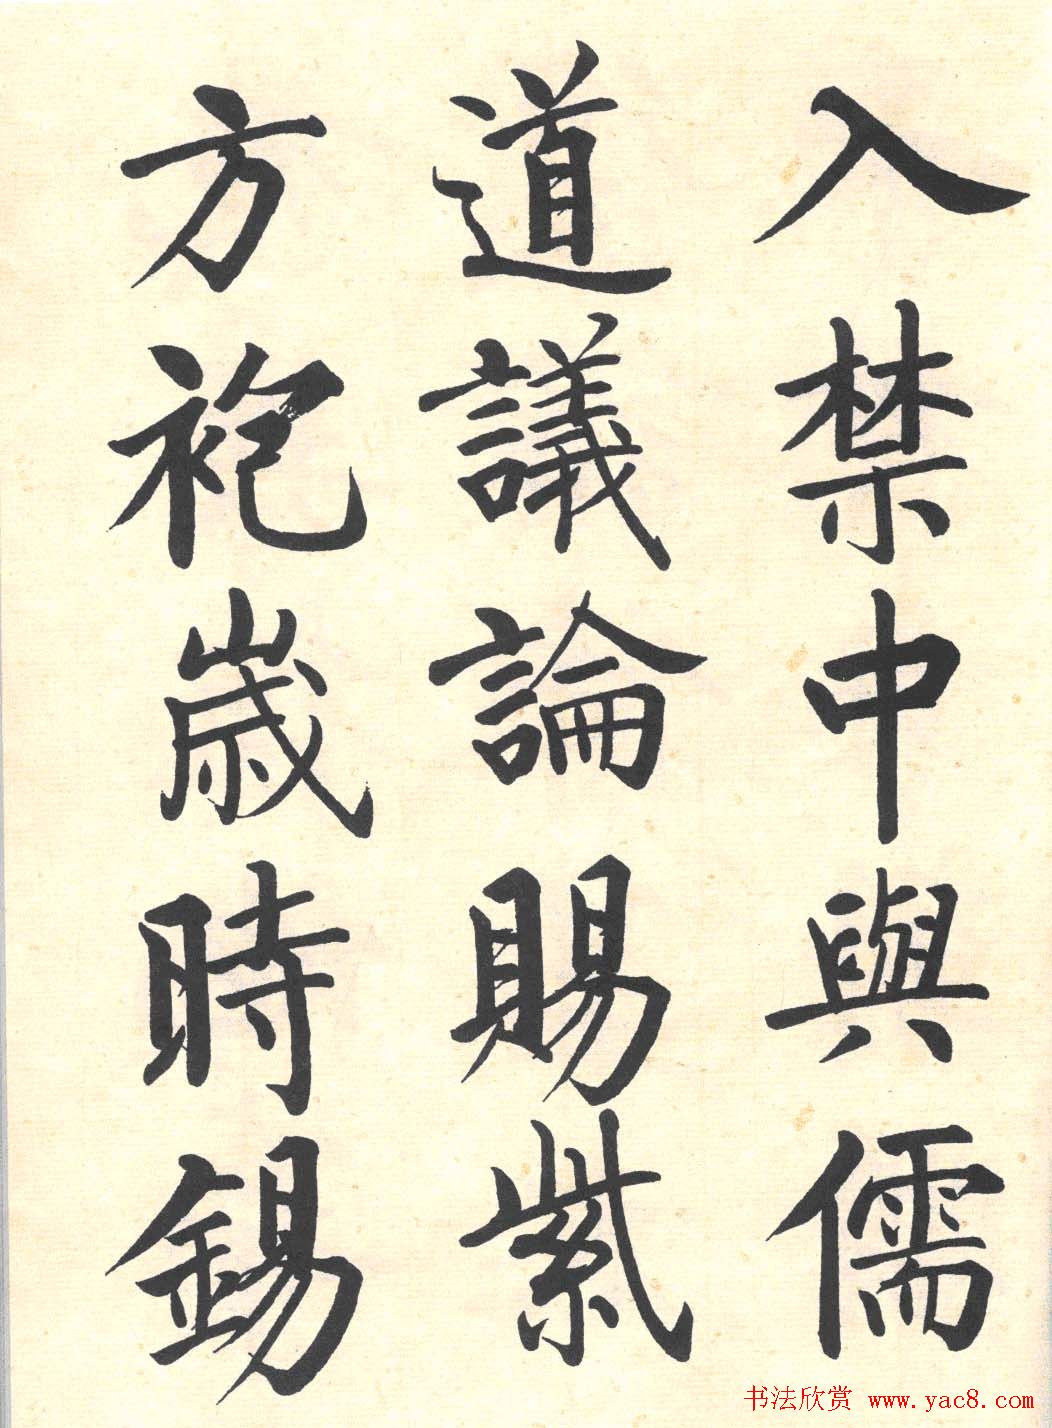 入禁中與儒
道議論賜紫
方袍歲時錫
书法欣赏 www.yac8.com